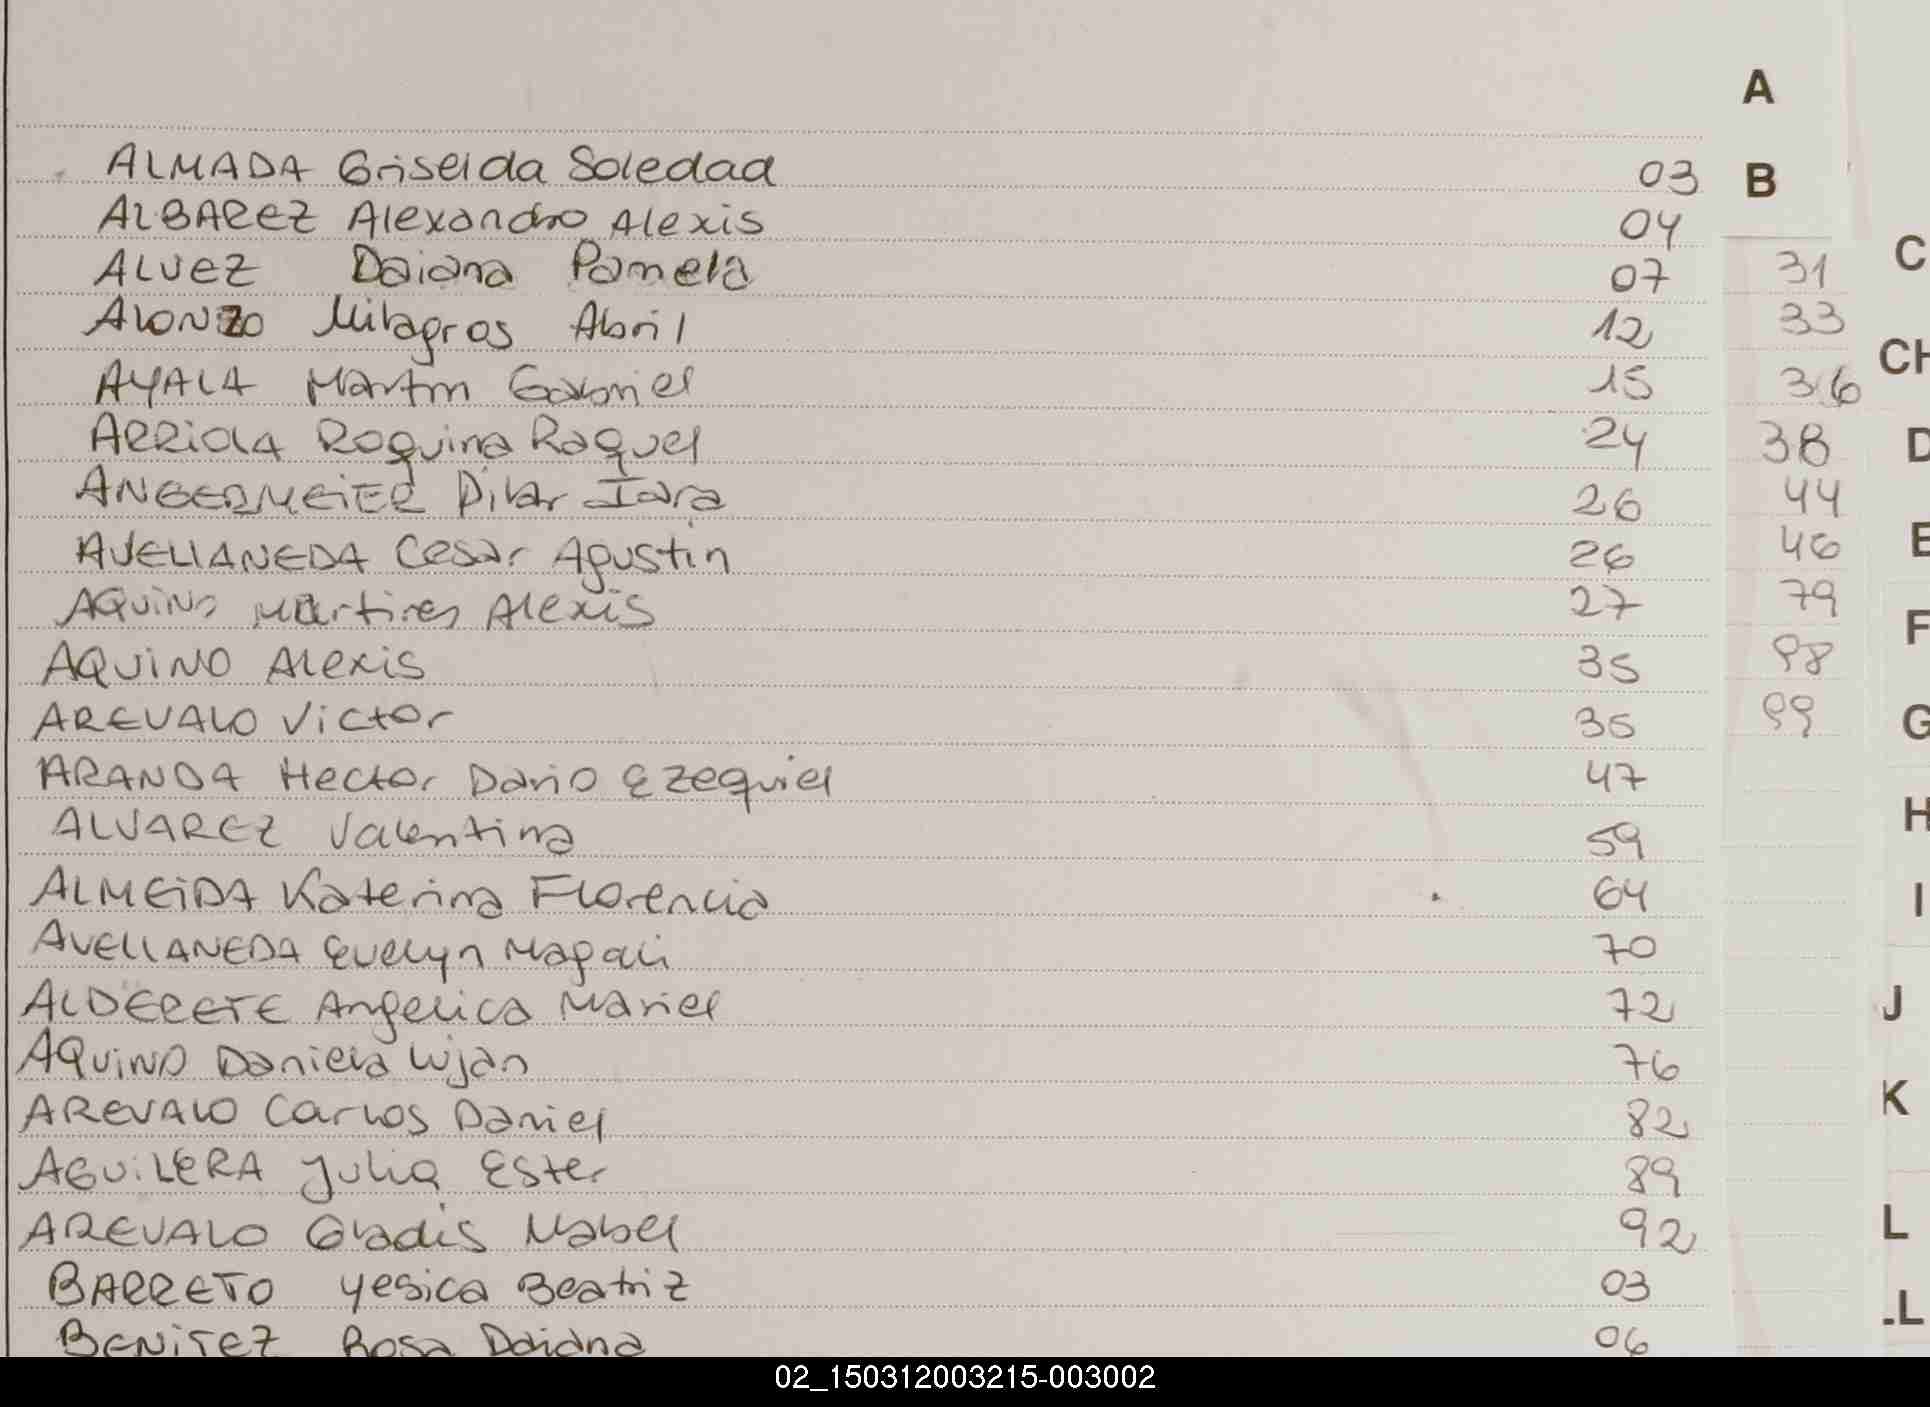 A
ALMADA Griselda Soledad 03
B
ALBAREZ Alexandro Alexis 04
C
ALVEZ Daiana Pamela 07 31
ALONZO Milagros Abril 12 33
CH
AYALA Martin Gabriel 15 36
ARRIOLA Roquina Raquel 24 38
D
ANGERMEIER Pilar Iara 26 44
AVELLANEDA Cesar Agustin 26 46
E
AQUINO Martires Alexis 27 79
F
AQUINO Alexis 35 98
AREVALO Victor 35 99
G
ARANDA Hector Dario Ezequiel 47
ALVAREZ Valentina 59
H
ALMEIDA Katerina Florencia 64
I
AVELLANEDA Evelyn Magali 70
ALDERETE Angelica Mariel 72
J
AQUINO Daniela Lujan 76
AREVALO Carlos Daniel 82
K
AGUILERA Julia Ester 89
AREVALO Gladis Mabel 92
L
BARRETO Yesica Beatriz 03
LL
BENITEZ Rosa Daiana 06
02_150312003215-003002